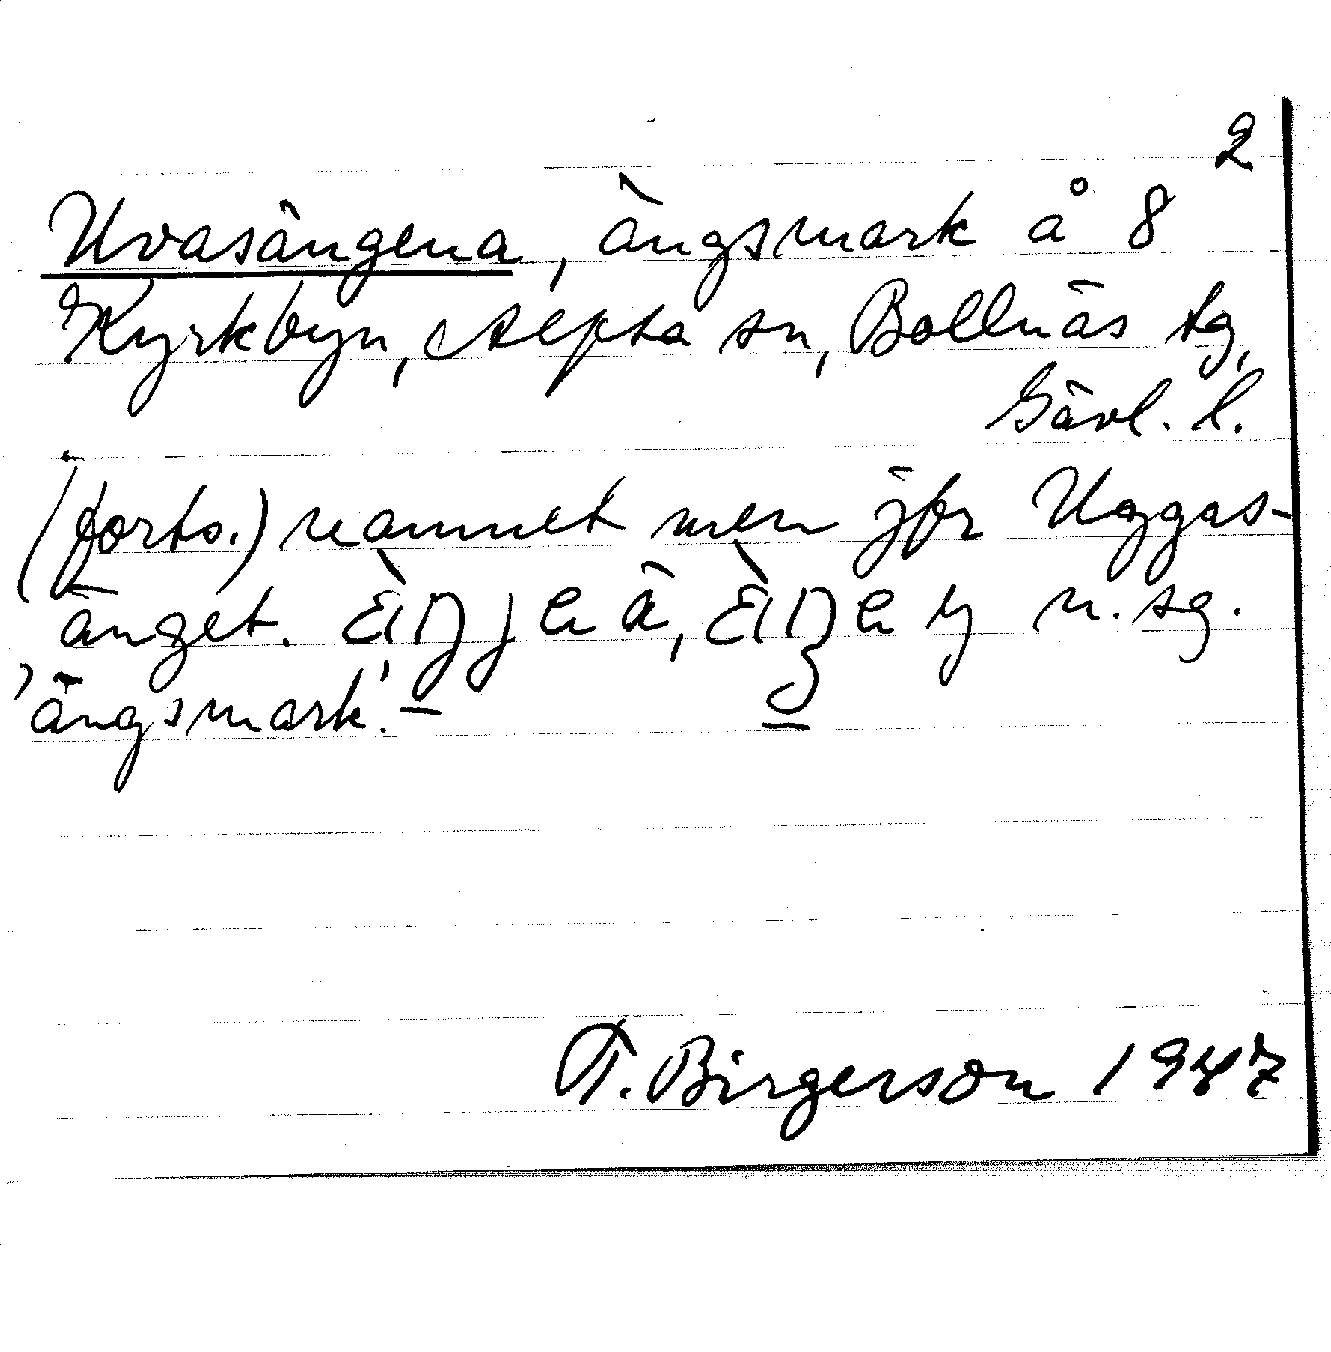 2
Uvasängena, ängsmark å 8
Kyrkbyn, Alfta sn, Bollnäs tg,
Gävl. l.
(forts.) namnet men jfr Uggas-
änget. n. sg.
'ängsmark'.
T. Birgerson 1947